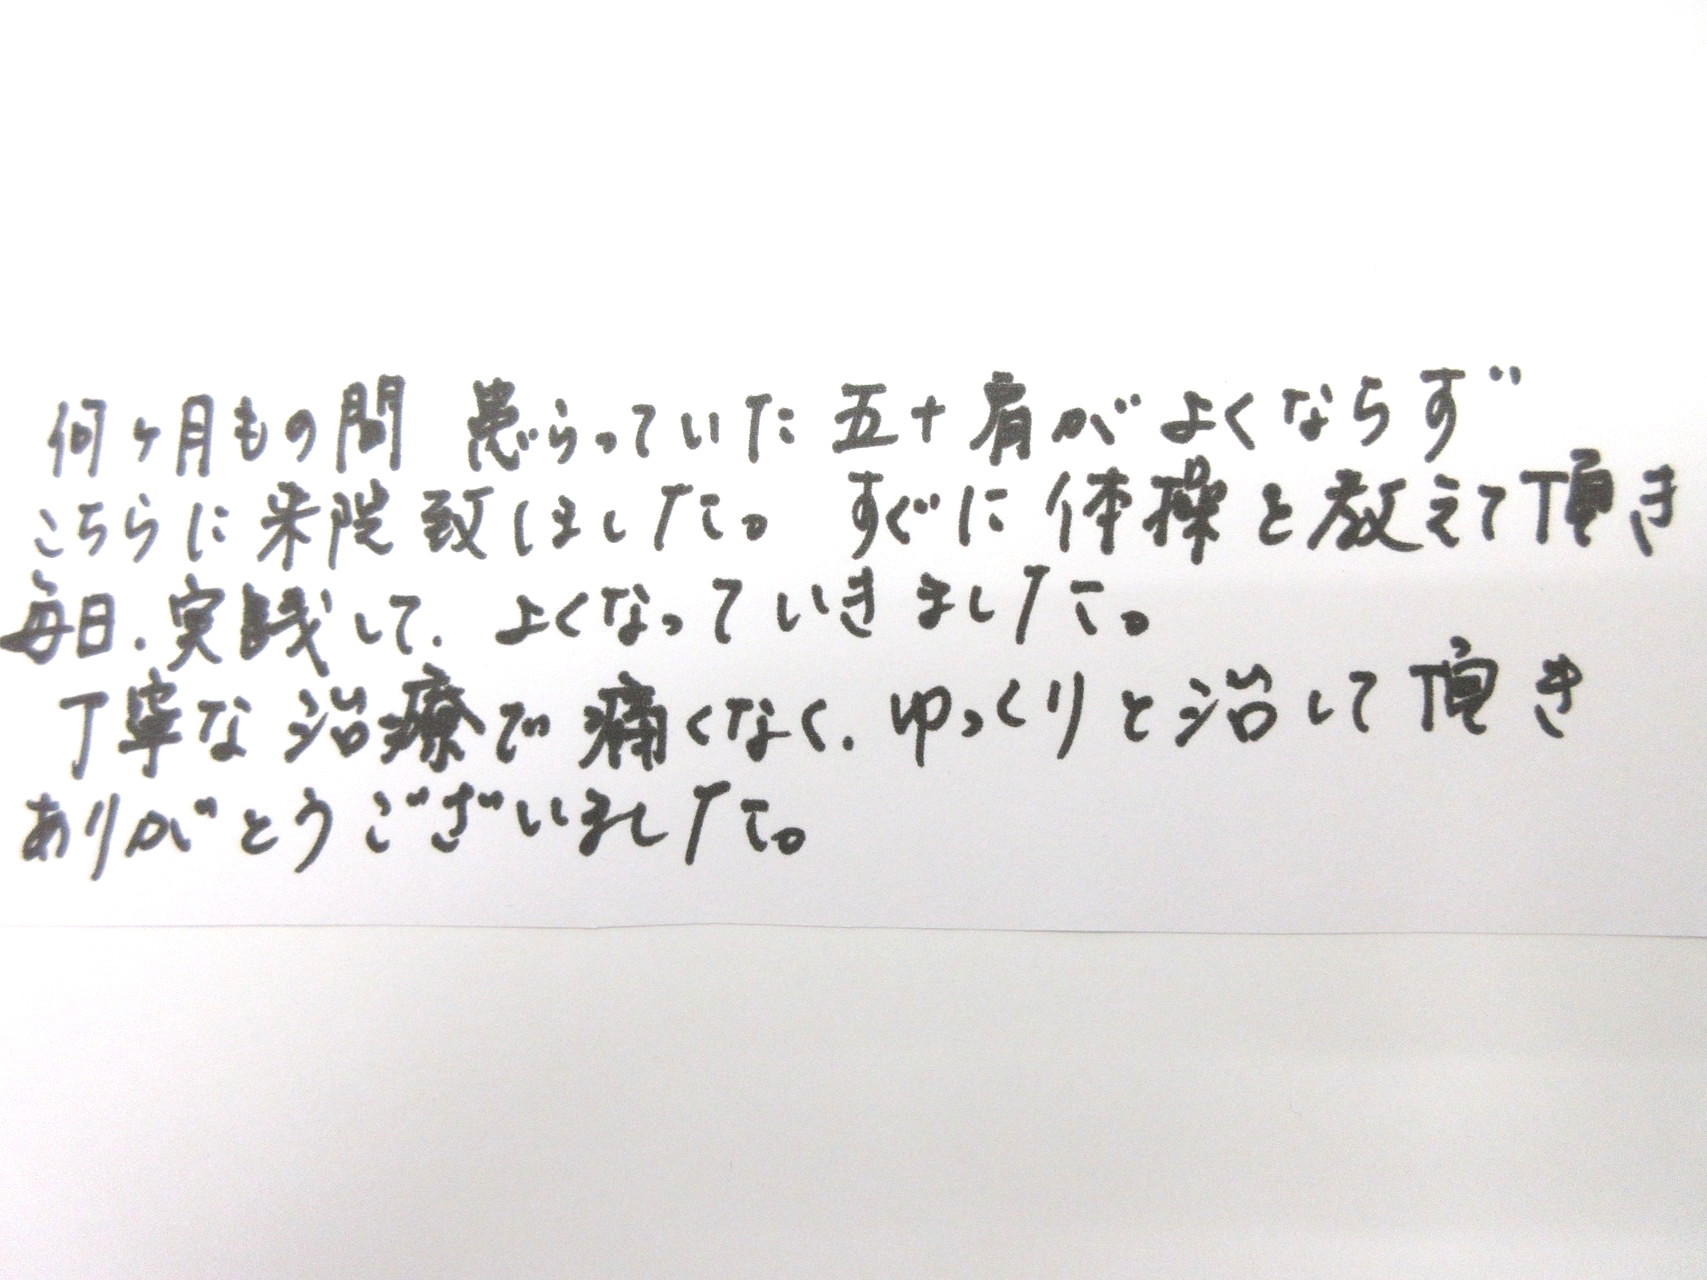 何ヶ月もの間 患らっていた五十肩がよくならず
こちらに来院致しました。 すぐに体操と教えて頂き
毎日、実践して、よくなっていきました。
丁寧な治療で痛くなく、ゆっくりと治して頂き
ありがとうございました。